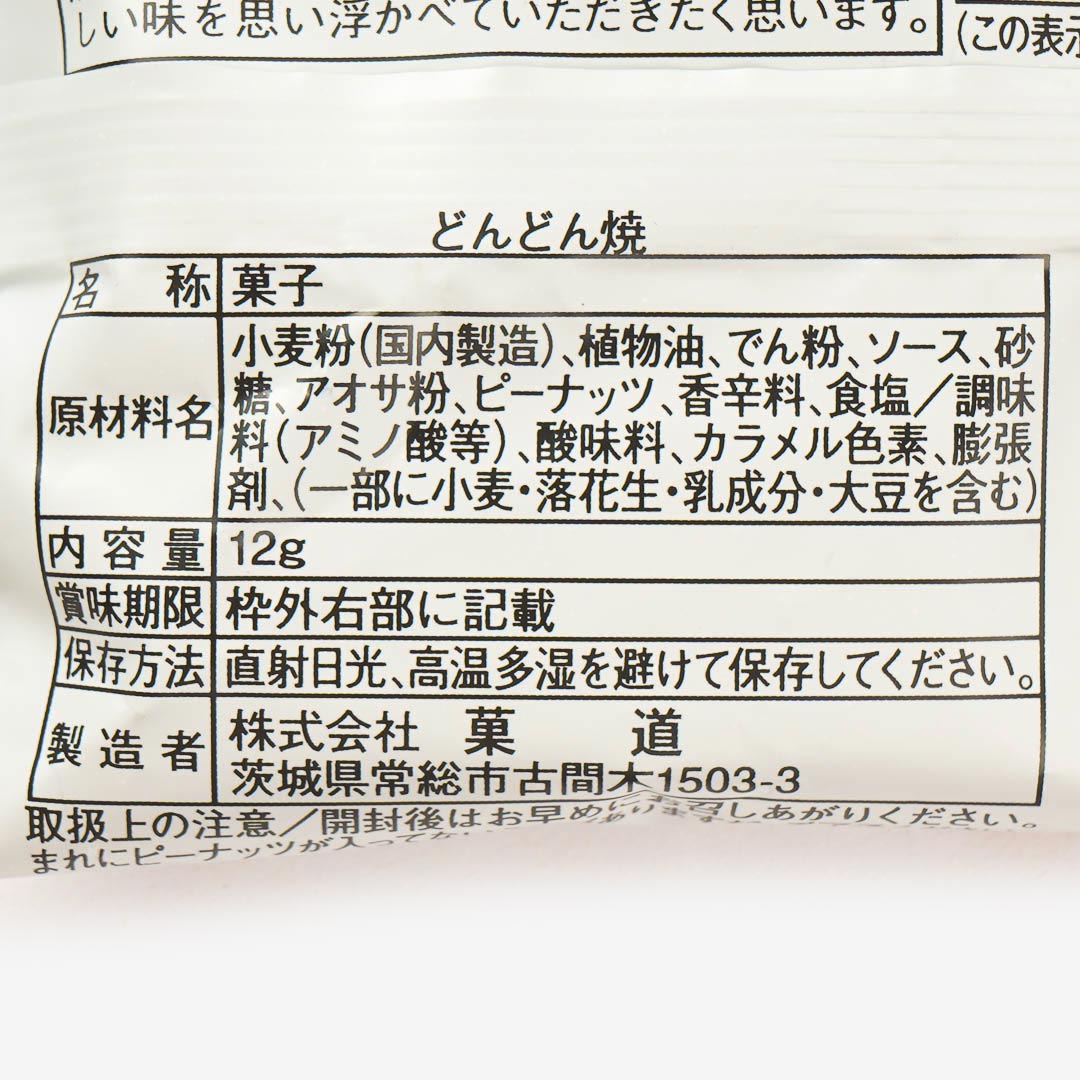 しい味を思い浮かべていただきたく思います。
(この表示
どんどん焼
名称 菓子
原材料名 小麦粉(国内製造)、植物油、でん粉、ソース、砂
糖、アオサ粉、ピーナッツ、香辛料、食塩／調味
料(アミノ酸等)、酸味料、カラメル色素、膨張
剤、(一部に小麦・落花生・乳成分・大豆を含む)
内容量 12g
賞味期限 枠外右部に記載
保存方法 直射日光、高温多湿を避けて保存してください。
製造者 株式会社 菓道
茨城県常総市古間木1503-3
取扱上の注意／開封後はお早めにお召しあがりください。
まれにピーナッツが入ってな